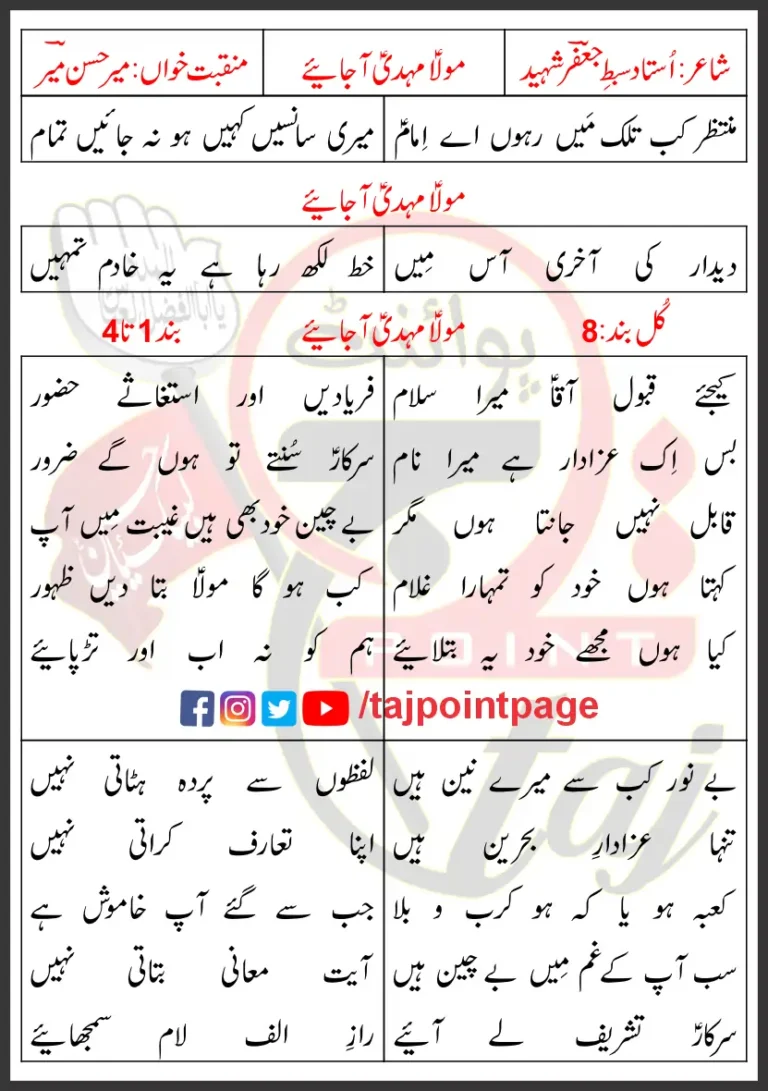 شاعر: اُستاد سبطِ جعفرؔ شہید
مولاؑ مہدیؑ آ جائیے
منقبت خواں: میر حسن میرؔ
منتظر کب تلک مَیں رہوں اے اِمامؑ
میری سانسیں کہیں ہو نہ جائیں تمام
مولاؑ مہدیؑ آ جائیے
دیدار کی آخری آس مِیں
خط لکھ رہا ہے یہ خادم تمہیں
کُل بند: 8
مولاؑ مہدیؑ آ جائیے
بند 1 تا 4
کیجئے قبول آقاؑ میرا سلام
بس اِک عزادار ہے میرا نام
قابل نہیں جانتا ہوں مگر
کہتا ہوں خود کو تمہارا غلام
کیا ہوں مجھے خود یہ بتلائیے
فریادیں اور استغاثے حضور
سرکارؑ سُنتے تو ہوں گے ضرور
بے چین خود بھی ہیں غیبت مِیں آپ
کب ہو گا مولاؑ بتا دیں ظہور
ہم کو نہ اب اور تڑپائیے
/tajpointpage
بے نور کب سے میرے نین ہیں
تنہا عزادارِ بحرین ہیں
کعبہ ہو یا کہ ہو کرب و بلا
سب آپ کے غم مِیں بے چین ہیں
سرکارؑ تشریف لے آئیے
لفظوں سے پردہ ہٹاتی نہیں
اپنا تعارف کراتی نہیں
جب سے گئے آپ خاموش ہے
آیت معانی بتاتی نہیں
رازِ الف لام سمجھائیے
پوائنٹ
POINT
taj